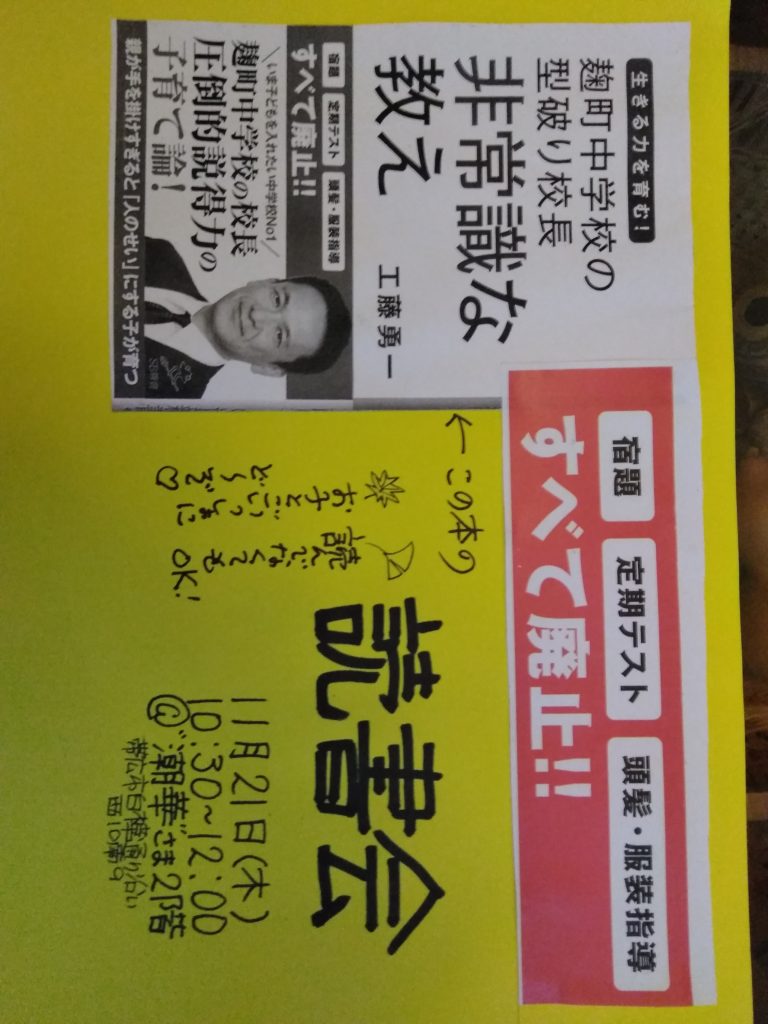 生きる力を育む!
麹町中学校の
型破り校長
非常識な
教え
工藤勇一
宿題 定期テスト 頭髪・服装指導
すべて廃止!!
\いま子どもを入れたい中学校No1/
麹町中学校の校長
圧倒的説得力の
子育て論!
親が手を掛けすぎると「人のせい」にする子が育つ
SB新書
宿題 定期テスト 頭髪・服装指導
すべて廃止!!
← この本の
読書会
読んでなくても
OK!
お子とごいっしょに
ど〜ぞ♡
11月21日(木)
10:30~12:00
@"潮華"さま2階
帯広市白樺通り沿い